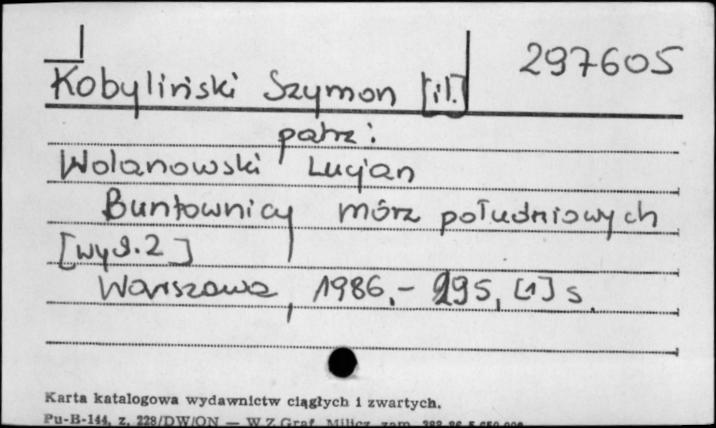 297605
Kobyliński Szymon [il.]
patrz:
Wolanowski Lucjan
Buntownicy mórz południowych
[wyd.2]
Warszawa, 1986.- 295, [1] s.
Karta katalogowa wydawnictw ciągłych i zwartych.
Pu-B-144, z. 228/DW/ON — W.Z.Graf. Milicz, zam.